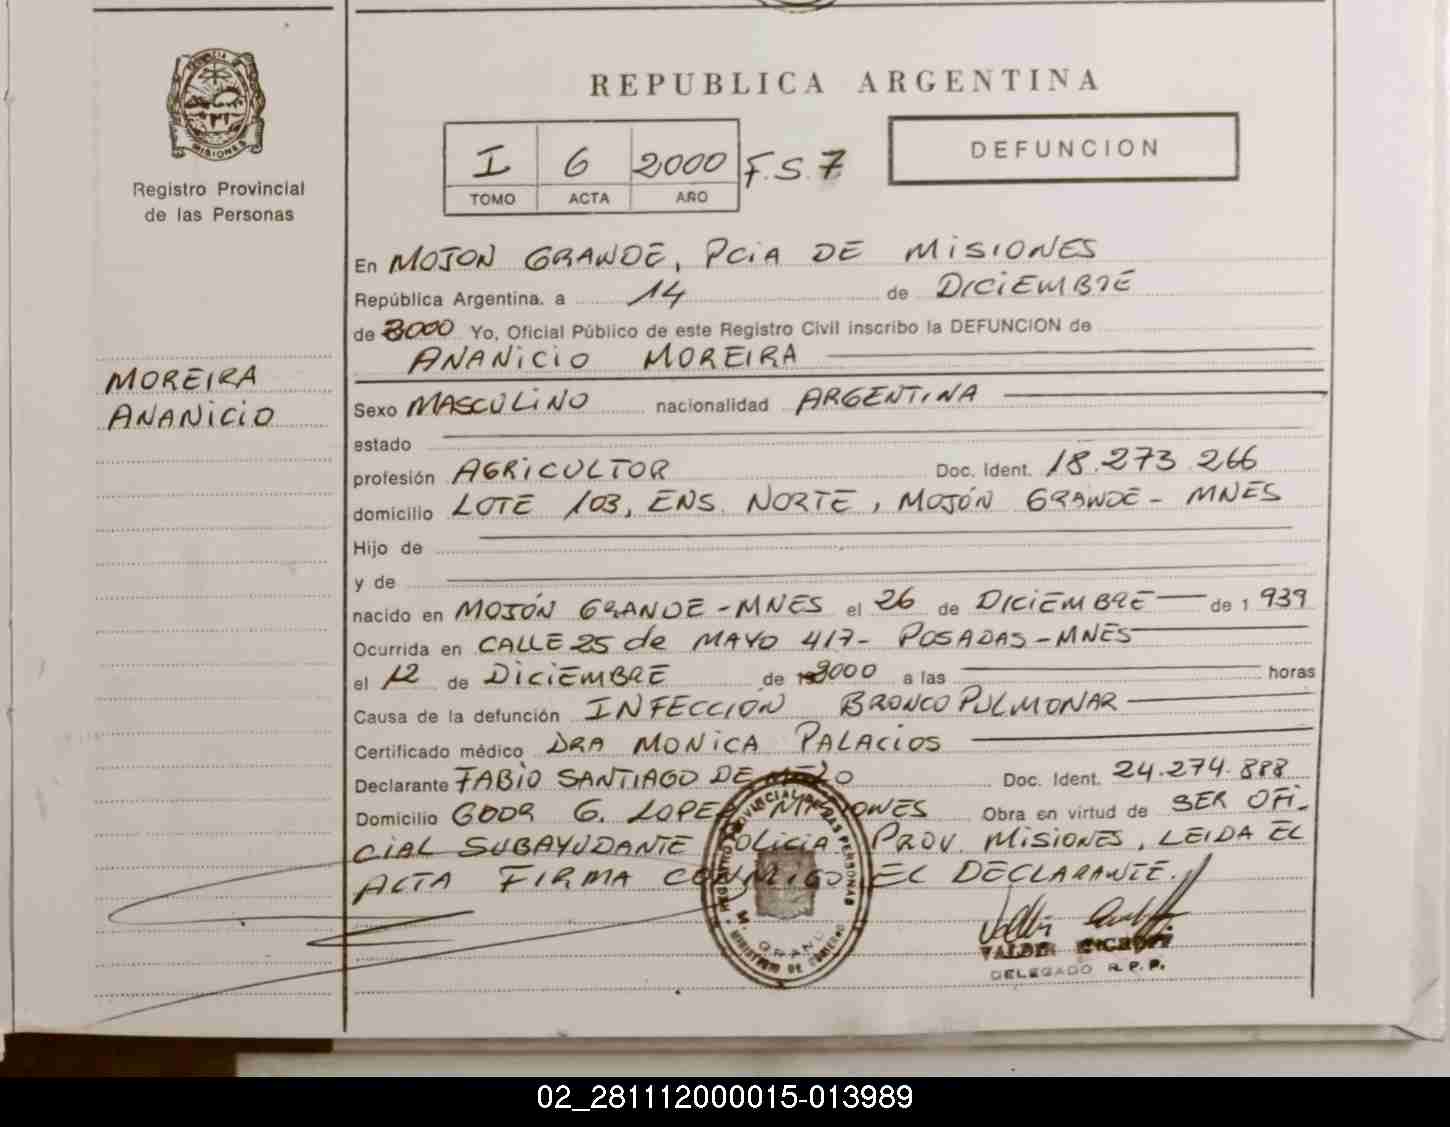 PROVINCIA DE
MISIONES
Registro Provincial
de las Personas
MOREIRA
ANANICIO
REPUBLICA ARGENTINA
I 6 2000 F.S.7
TOMO ACTA AÑO
DEFUNCION
En MOJON GRANDE, PCiA DE MISIONES
República Argentina. a 14 de DICIEMBRE
de 2000 Yo, Oficial Público de este Registro Civil inscribo la DEFUNCION de
ANANICIO MOREIRA
Sexo MASCULINO nacionalidad ARGENTINA
estado
profesión AGRICULTOR Doc. Ident. 18.273.266
domicilio LOTE 103, ENS. NORTE, MOJÓN GRANDE - MNES
Hijo de
y de
nacido en MOJÓN GRANDE - MNES el 26 de DICIEMBRE de 1 939
Ocurrida en CALLE 25 de MAYO 417 - POSADAS - MNES
el 12 de DICIEMBRE de 2000 a las horas
Causa de la defunción INFECCIÓN BRONCOPULMONAR
Certificado médico DRA MONICA PALACIOS
Declarante FABIO SANTIAGO DE MELO Doc. Ident. 24.274.888
Domicilio GODR G. LOPEZ MISIONES Obra en virtud de SER OFI-
CIAL SUBAYUDANTE POLICIA PROV. MISIONES, LEIDA EL
ACTA FIRMA CONMIGO EL DECLARANTE.
REGISTRO PROVINCIAL DE LAS PERSONAS
M. GRANDE
MINISTERIO DE GOBIERNO
VALDIR
DELEGADO R.P.P.
02_281112000015-013989